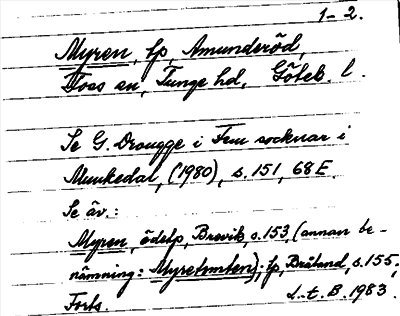 1-2.
Myren, lp Amunderöd,
Foss sn, Tunge hd, Göteb. l.
Se G. Drougge i Fem socknar i
Munkedal, (1980), s. 151, 68 E.
Se äv.:
Myren, ödelp, Brevik, s. 153, (annan be-
nämning: Myretomten); lp, Bråland, s. 155,
Forts. L-t. B. 1983.